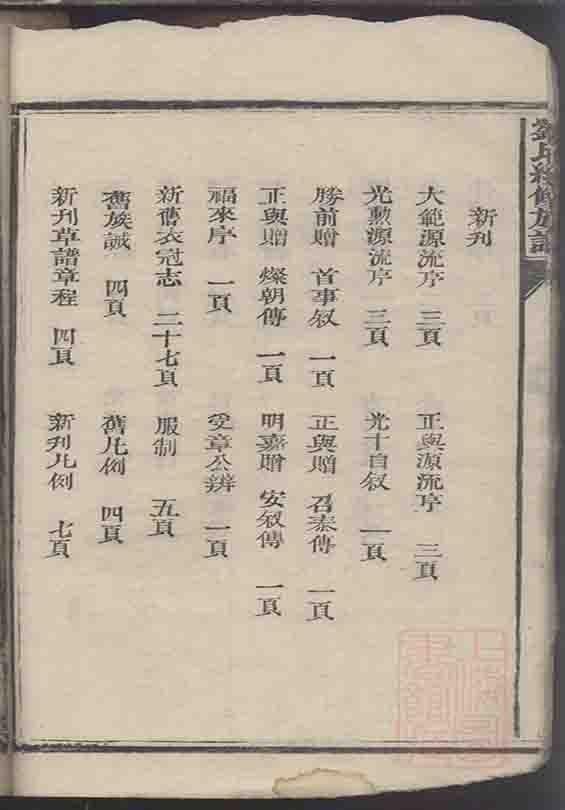 新刊
大範源流序 三頁 正與源流序 三頁
光勲源流序 三頁 光十自叙 一頁
勝前贈 首事叙 一頁 正與贈 召泰傳 一頁
正與贈 燦朝傳 一頁 明嘉贈 安叙傳 一頁
福來序 一頁 受章公辨 一頁
新舊衣冠志 二十七頁 服制 五頁
舊族誡 四頁 舊凡例 四頁
新刊草譜章程 四頁 新刊凡例 七頁